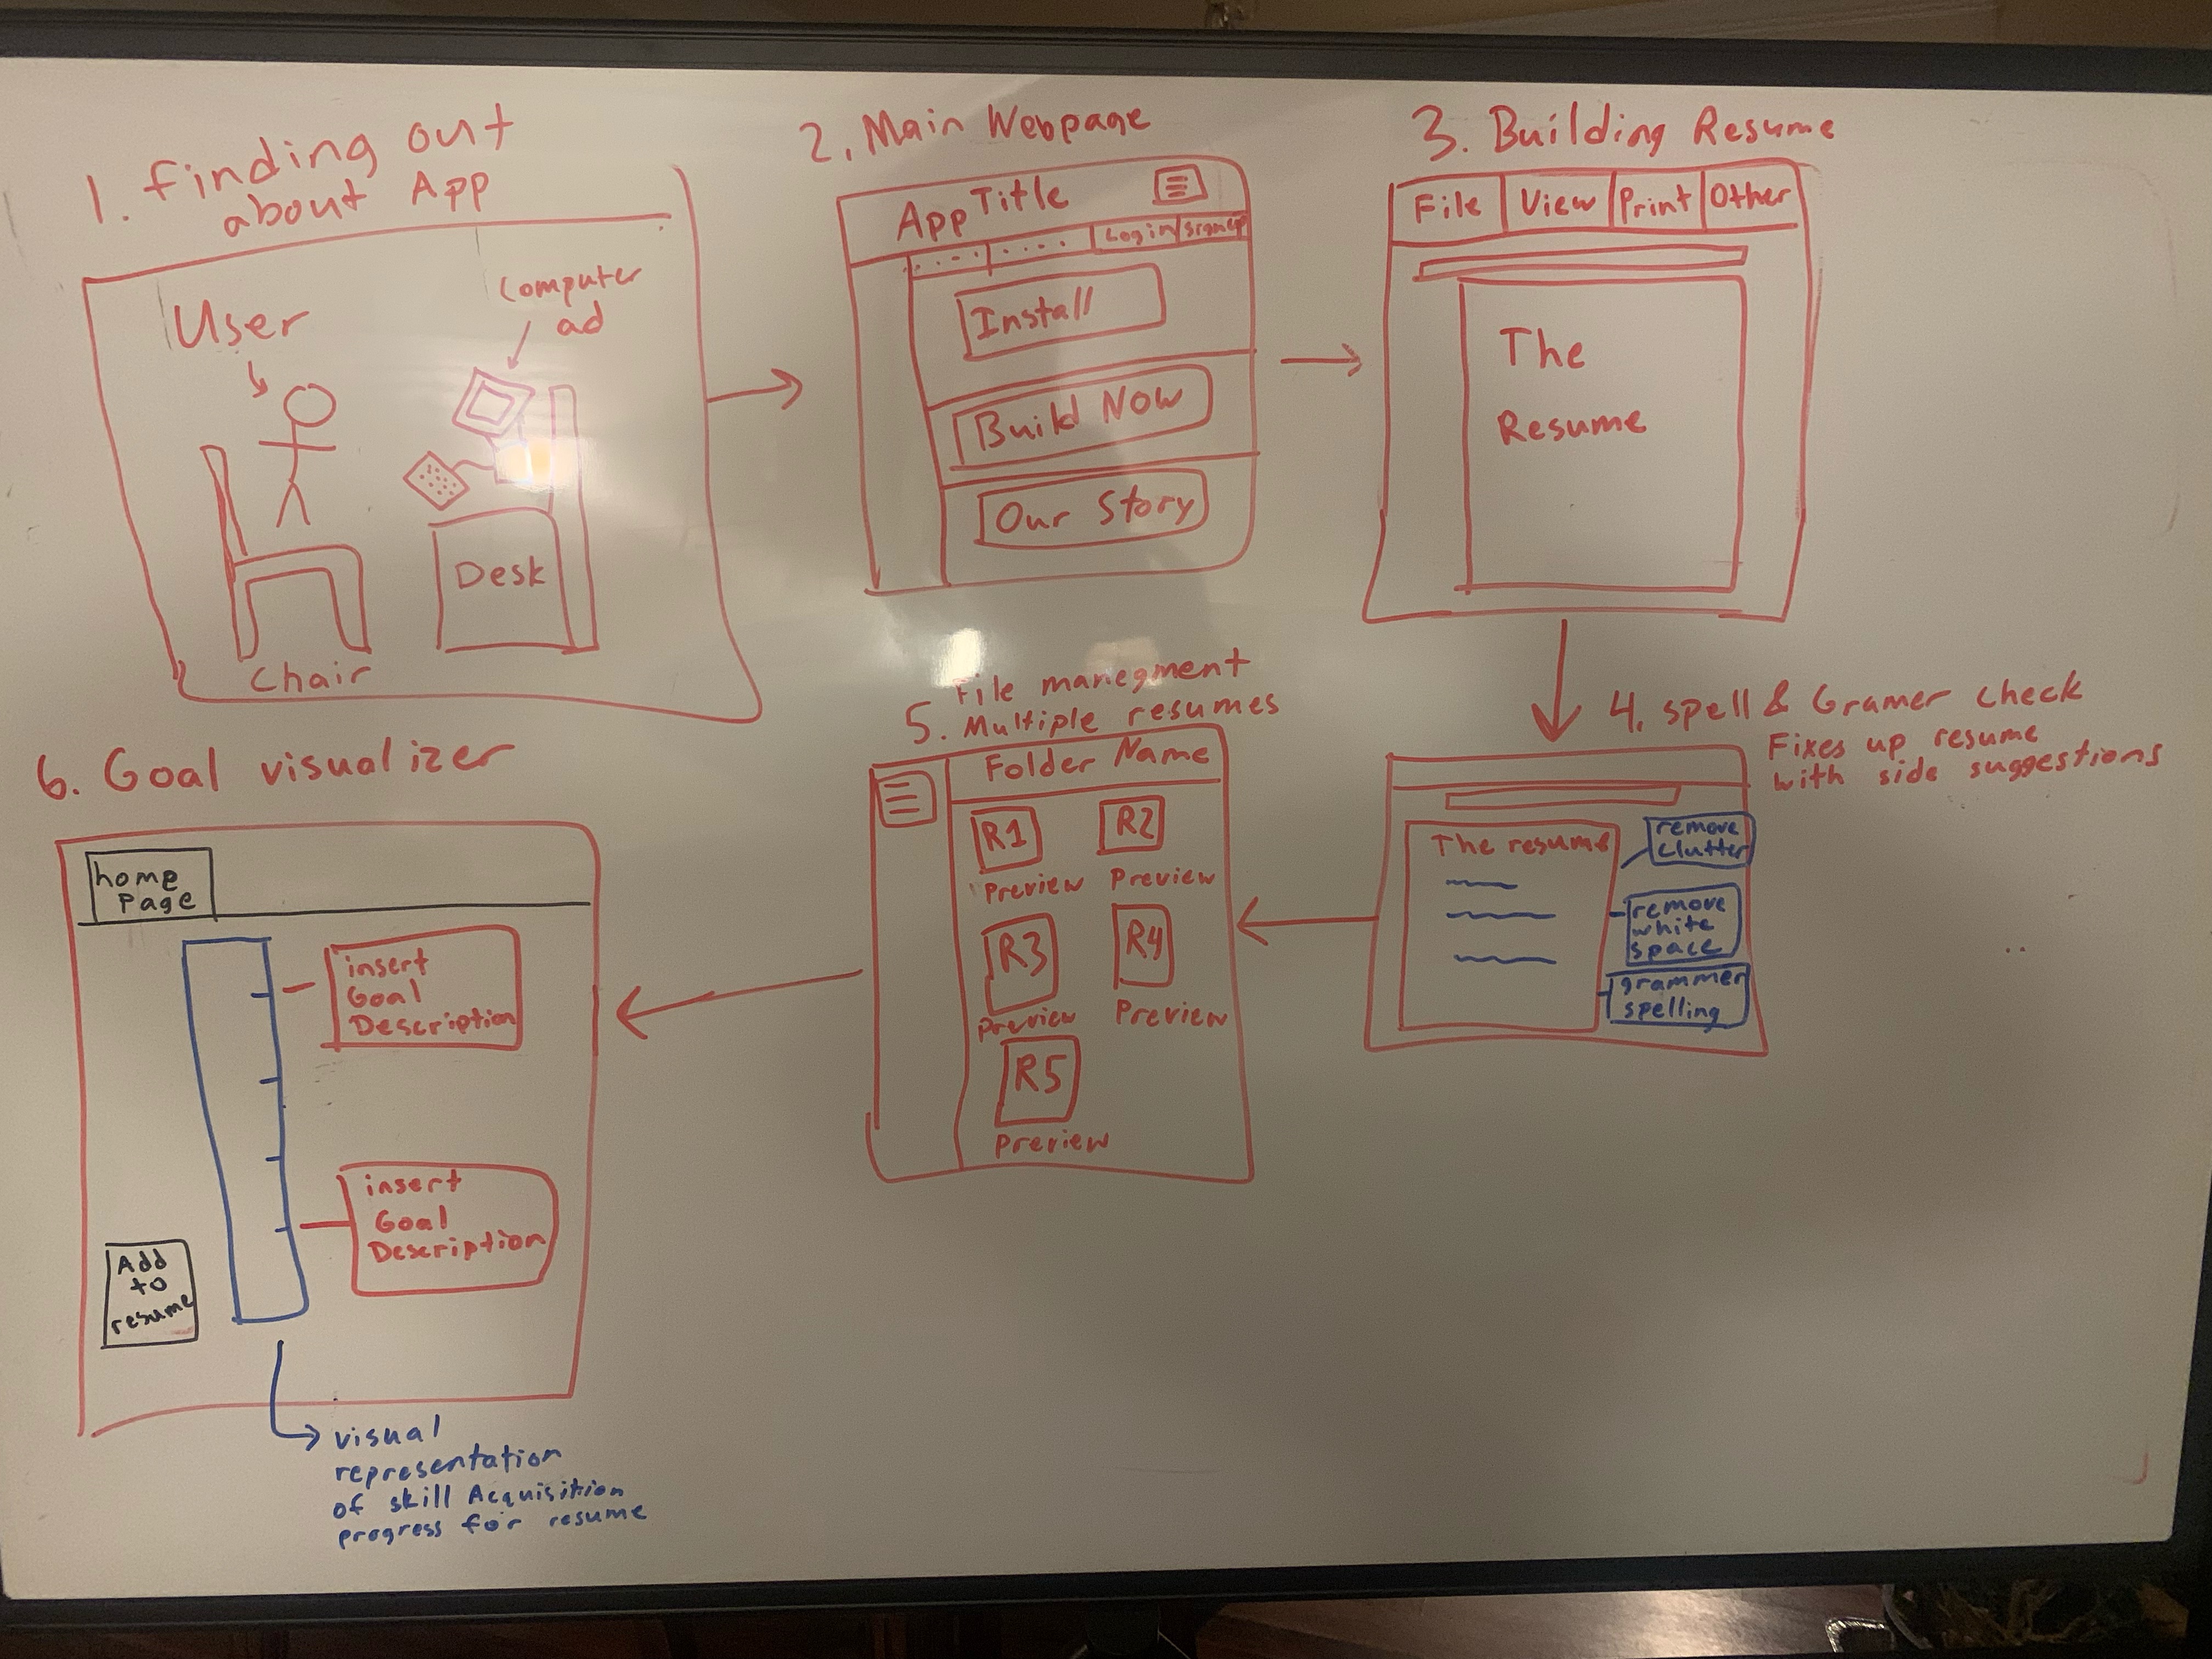 1. Finding out
about App
User
Computer
ad
Desk
Chair
2. Main Webpage
App Title
Login
Signup
Install
Build Now
Our Story
3. Building Resume
File
View
Print
Other
The
Resume
4. spell & Gramer check
Fixes up resume
with side suggestions
The resume
remove
clutter
remove
white
space
grammer
spelling
5. File manegment
Multiple resumes
Folder Name
R1
R2
Preview
Preview
R3
R4
Preview
Preview
R5
Preview
6. Goal visualizer
home
Page
insert
Goal
Description
insert
Goal
Description
Add
to
resume
visual
representation
of skill Acquisition
progress for resume